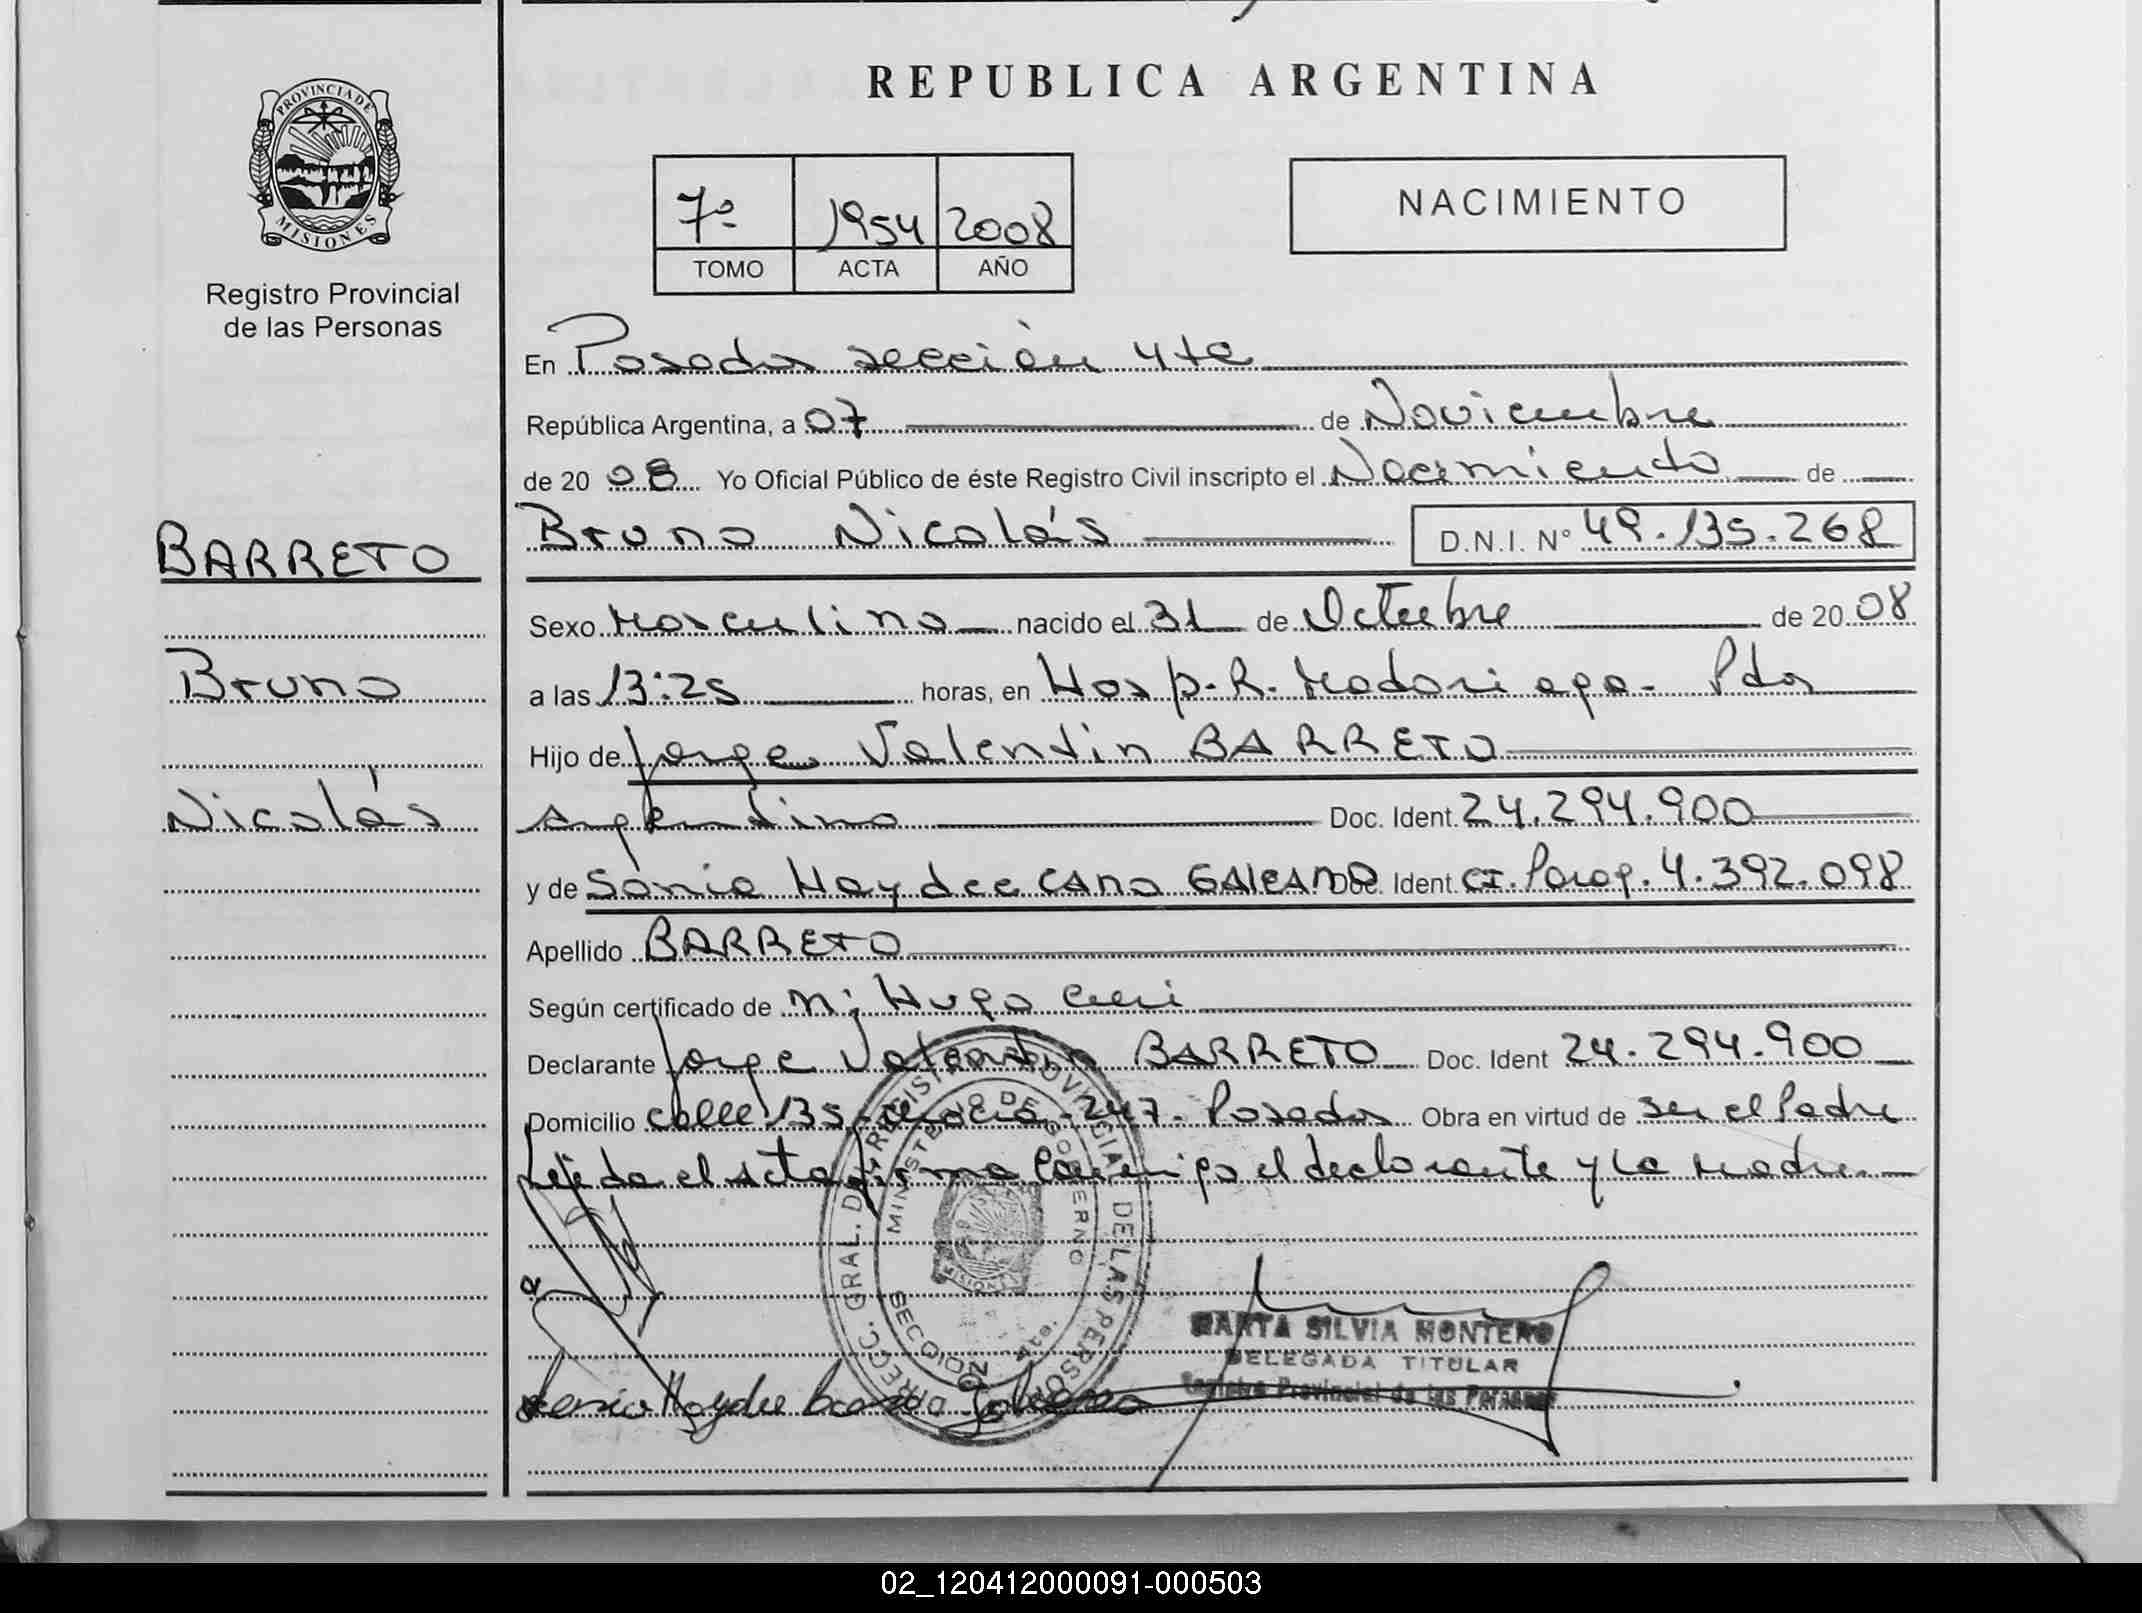 REPUBLICA ARGENTINA
PROVINCIA DE
MISIONES
Registro Provincial
de las Personas
7º 1954 2008
TOMO ACTA AÑO
NACIMIENTO
En Posadas sección 4ta
República Argentina, a 07 de Noviembre
de 20 08 Yo Oficial Público de éste Registro Civil inscripto el Nacimiento de
BARRETO
Bruno
Nicolás
Bruno Nicolás D.N.I. Nº 49.135.268
Sexo Masculino nacido el 31 de Octubre de 20 08
a las 13:25 horas, en Hosp. R. Madariaga - Pdas
Hijo de Jorge Valentin BARRETO
Argentino Doc. Ident. 24.294.900
y de Sonia Haydee CANO GALEANO Doc. Ident. CI. Parag. 4.392.098
Apellido BARRETO
Según certificado de Hugo
Declarante Jorge Valentin BARRETO Doc. Ident 24.294.900
Domicilio Calle 135 - 247 - Posadas Obra en virtud de ser el Padre
Leída el Acta firma conmigo el declarante y la Madre
DIRECC. GRAL. DEL REGISTRO PROVINCIAL DE LAS PERSONAS
MINISTERIO DE GOBIERNO
MISIONES
SECCION 4ta.
MARTA SILVIA MONTERO
DELEGADA TITULAR
Registro Provincial de las Personas
Sonia Haydee Cano Galeano
02_120412000091-000503